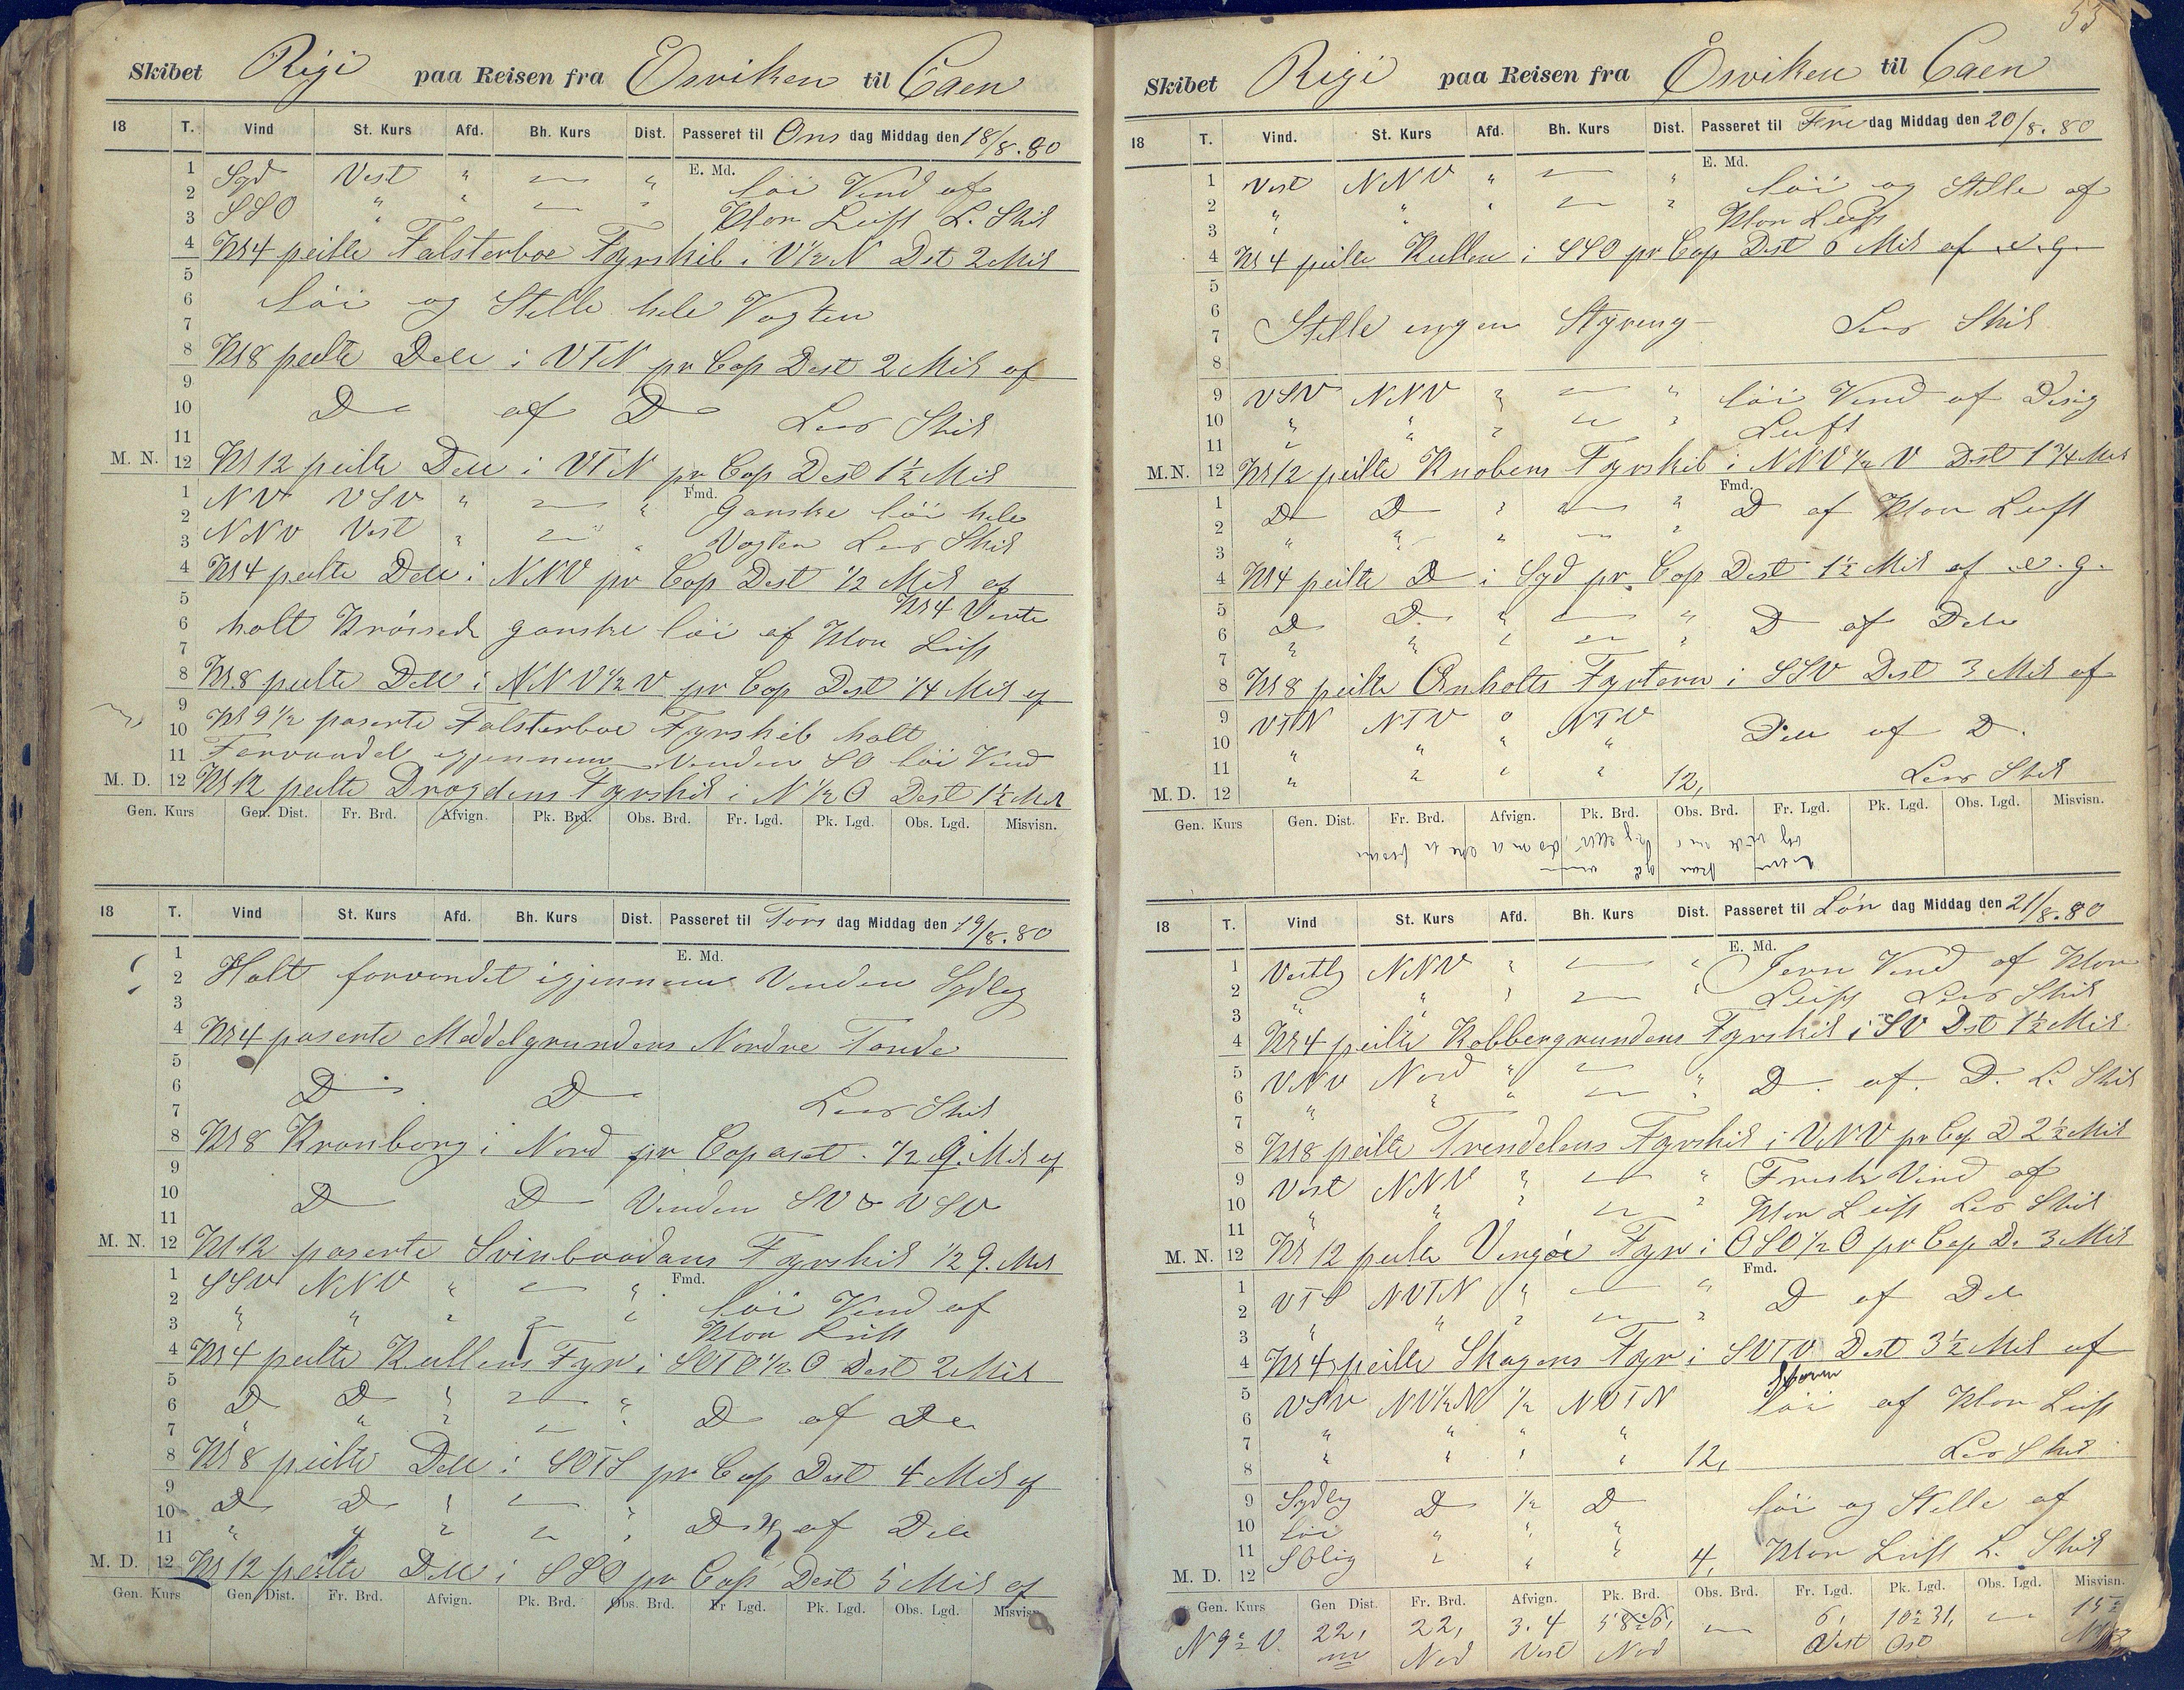 Skibet Rigi paa Reisen fra Ösviken til Caen
18 T. Vind St. Kurs Afd. Bh. Kurs Dist. Passeret til Ons dag Middag den 18/8. 80
E. Md.
1 Syd Vest " " löi Vind af
2 SSO " " " Klar Luft L. Skib
3
4 Kl 4 peilte Falsterboe Fyrskib i V½N Dst 2 Mil
5
6 löi og Stille hele Vagten
7
8 Kl 8 peilte Dele i VTN pr Cop Dest 2 Mil af
9
10 Do af Do Lens Skib
11
M. N. 12 Kl 12 peilte Dele i VTN pr Cop Dest 1½ Mil
Fmd.
1 NV VSV " " Ganske löi hele
2 NNV Vest " " Vagten Lens Skib
3
4 Kl 4 peilte Dele i NNV pr Cop Dest ½ Mil af
5 Kl 4 Vente
6 holt Krössede ganske löi af Klar Luft
7
8 Kl 8 peilte Dele i NNV½V pr Cop Dest ¼ Mil af
9 Kl 9½ paserte Falsterboe Fyrskib holt
10 Farvandet igjennem Vinden SO löi Vind
11
M. D. 12 Kl 12 peilte Drogdens Fyrskib i N½O Dest 1½ Mil
Gen. Kurs Gen. Dist. Fr. Brd. Afvign. Pk. Brd. Obs. Brd. Fr. Lgd. Pk. Lgd. Obs. Lgd. Misvisn.
18 T. Vind St. Kurs Afd. Bh. Kurs Dist. Passeret til Tors dag Middag den 19/8. 80
E. Md.
1
2 Holt farvandet igjennem Vinden Sydleg
3
4 Kl 4 paserte Meddelgrundens Nordre Tonde
5
6 Do Do Lens Skib
7
8 Kl 8 Kronborg i Nord pr Cop ½ g. Mil af
9
10 Do Do Vinden SV & VSV
11
M. N. 12 Kl 12 paserte Svinbaadans Fyrskib ½ g. Mil
Fmd.
1 SSV NNV " " löi Vind af
2 " " " " Klar Luft
3
4 Kl 4 peilte Kullens Fyr i SOTO½O Dest 2 Mil
5
6 Do Do " " Do af De
7
8 Kl 8 peilte Dele i SOTS pr Cop Dest 4 Mil af
9
10 Do Do " " Do af Dele
11
M. D. 12 Kl 12 peilte Dele i SSO pr Cop Dest 5 Mil af
Gen. Kurs Gen. Dist. Fr. Brd. Afvign. Pk. Brd. Obs. Brd. Fr. Lgd. Pk. Lgd. Obs. Lgd. Misvisn.
53
Skibet Rigi paa Reisen fra Ösviken til Caen
18 T. Vind. St. Kurs Afd. Bh. Kurs Dist. Passeret til Fre dag Middag den 20/8. 80
E. Md.
1 Vest NNV " " löi og Stille af
2 " " " " Klar Luft
3
4 Kl 4 peilte Kullen i SSO pr Cop Dest 6 Mil af e. g.
5
6
7 Stille ingen Styring Lens Skib
8
9 VSV NNV " " löi Vind af Disig
10 " " " " Luft
11
M. N. 12 Kl 12 peilte Knobens Fyrskib i NNV½V Dst 1¾ Mil
Fmd.
1 Do Do " " Do af Klar Luft
2
3
4 Kl 4 peilte D i Syd pr Cop Dest 1½ Mil af e. g.
5
6 Do Do " " Do af Dele
7
8 Kl 8 peilte Anholts Fyrtarn i SSV Dest 3 Mil af
9 VTN NTV 0 NTV
10 " " " " Dele af D.
11 Lens Skib
M. D. 12 12,
Gen. Kurs Gen. Dist. Fr. Brd. Afvign. Pk. Brd. Obs. Brd. Fr. Lgd. Pk. Lgd. Obs. Lgd. Misvisn.
18 T. Vind St. Kurs Afd. Bh. Kurs Dist. Passeret til Lör dag Middag den 21/8. 80
E. Md.
1 Vestlg NNV " " Jevn Vind af Klar
2 " " " " Luft Lens Skib
3
4 Kl 4 peilte Kobbergrundens Fyrskib i SV Dst 1½ Mil
5 VNV Nord " " Do. af. D. L. Skib
6
7
8 Kl 8 peilte Trendelens Fyrskib i VNV pr Cop D 2½ Mil
9 Vest NNV " " Frisk Vind af
10 " " " " Klar Luft Lens Skib
11
M. N. 12 Kl 12 peilte Vingöe Fyr i OSO½O pr Cop D. 3 Mil
Fmd.
1 VTS NVTN " " Do af Dele
2
3
4 Kl 4 peilte Skagens Fyr i SVTV Dest 3½ Mil af
5 VSV NV½N ½ NVTN löi af Klar Luft
6
7 12, Lens Skib
8
9 Sydlg Do ½ Do löi og Stille af
10 löi
11 SOlig 4, Klar Luft L. Skib
M. D. 12
Gen. Kurs Gen Dist. Fr. Brd. Afvign. Pk. Brd. Obs. Brd. Fr. Lgd. Pk. Lgd. Obs. Lgd. Misvisn.
N 9½ V. 22, 22, 3. 4 6, 10° 31,
m Nord Vest Nord Vest Ost